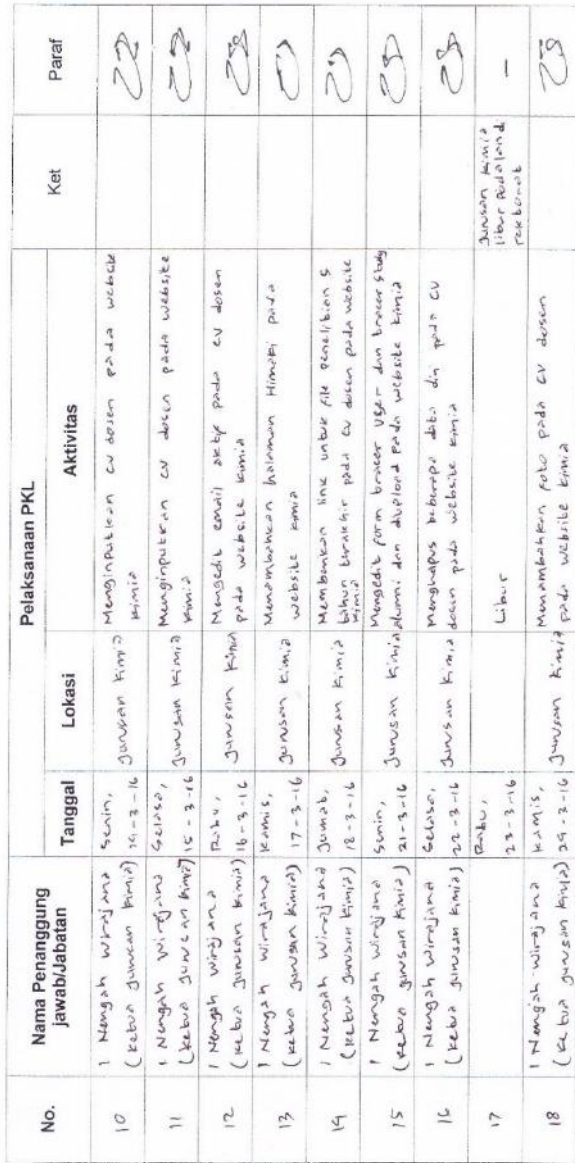 No.
Nama Penanggung
jawab/Jabatan
Pelaksanaan PKL
Tanggal
Lokasi
Aktivitas
Ket
Paraf
10
I Nengah Wirajana
(Ketua Jurusan Kimia)
Senin,
14-3-16
Jurusan Kimia
Menginputkan CV dosen pada website
kimia
11
I Nengah Wirajana
(Ketua Jurusan Kimia)
Selasa,
15-3-16
Jurusan Kimia
Menginputkan CV dosen pada website
kimia
12
I Nengah Wirajana
(Ketua Jurusan Kimia)
Rabu,
16-3-16
Jurusan Kimia
Mengedit email aktif pada CV dosen
pada website kimia
13
I Nengah Wirajana
(Ketua Jurusan Kimia)
Kamis,
17-3-16
Jurusan Kimia
Menambahkan halaman Himaki pada
website kimia
14
I Nengah Wirajana
(Ketua Jurusan Kimia)
Jumat,
18-3-16
Jurusan Kimia
Membenkan link untuk file penelitian 5
tahun terakhir pada CV dosen pada website
kimia
15
I Nengah Wirajana
(Ketua Jurusan Kimia)
Senin,
21-3-16
Jurusan Kimia
Mengedit form tracer user dan tracer study
alumni dan diupload pada website kimia
16
I Nengah Wirajana
(Ketua Jurusan Kimia)
Selasa,
22-3-16
Jurusan Kimia
Menghapus beberapa data diri pada CV
dosen pada website kimia
17
Rabu,
23-3-16
Libur
Jurusan Kimia
libur pada
rektorat
-
18
I Nengah Wirajana
(Ketua Jurusan Kimia)
Kamis,
24-3-16
Jurusan Kimia
Menambahkan foto pada CV dosen
pada website kimia